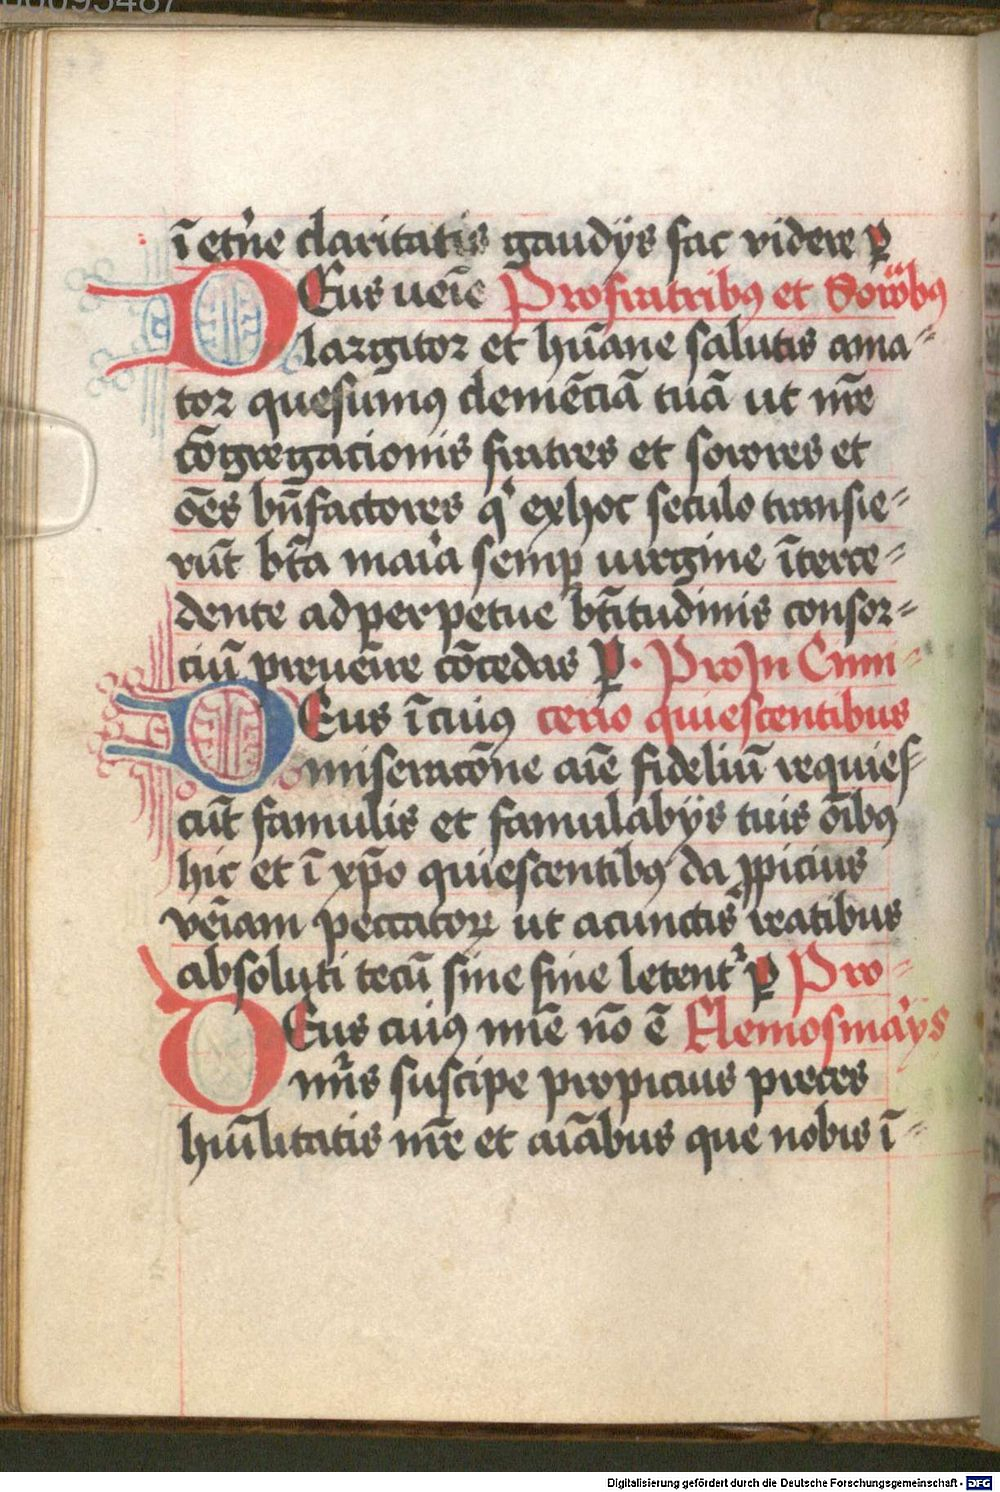 ī et̄ne claritatis gaudijs fac videre p̲
Deus uēie Pro fratribus et Sororibꝰ
largitor et hūane salutis ama⸗
tor quesumꝰ clemēciā tuā ut nr̄e
cōgregacionis fratres et sorores et
oēs bn̄factores qͥ ex hoc seculo transie⸗
rūt bt̄a maͥa semp̲ uirgine īterce⸗
dente ad perpetue bt̄itudinis consor⸗
ciū preuēire cōcedas p̲. Pro In Cimi⸗
Deus ī cuiꝰ terio quiescentibus
miseracōne aīe fideliū requies⸗
cūt famulis et famulabijs tuis oībꝰ
hic et ī xp̄o quiescentibꝰ da ꝓpicius
vēiam peccatoꝝ ut a cunctis reatibus
absoluti tecū sine fine letentᷣ p̲ Pro⸗
Deus cuiꝰ mīe nō ē Elemosinaͥys
nūs suscipe propicius preces
hūilitatis nr̄e et aīabus que nobis ī⸗
Digitalisierung gefördert durch die Deutsche Forschungsgemeinschaft - DFG